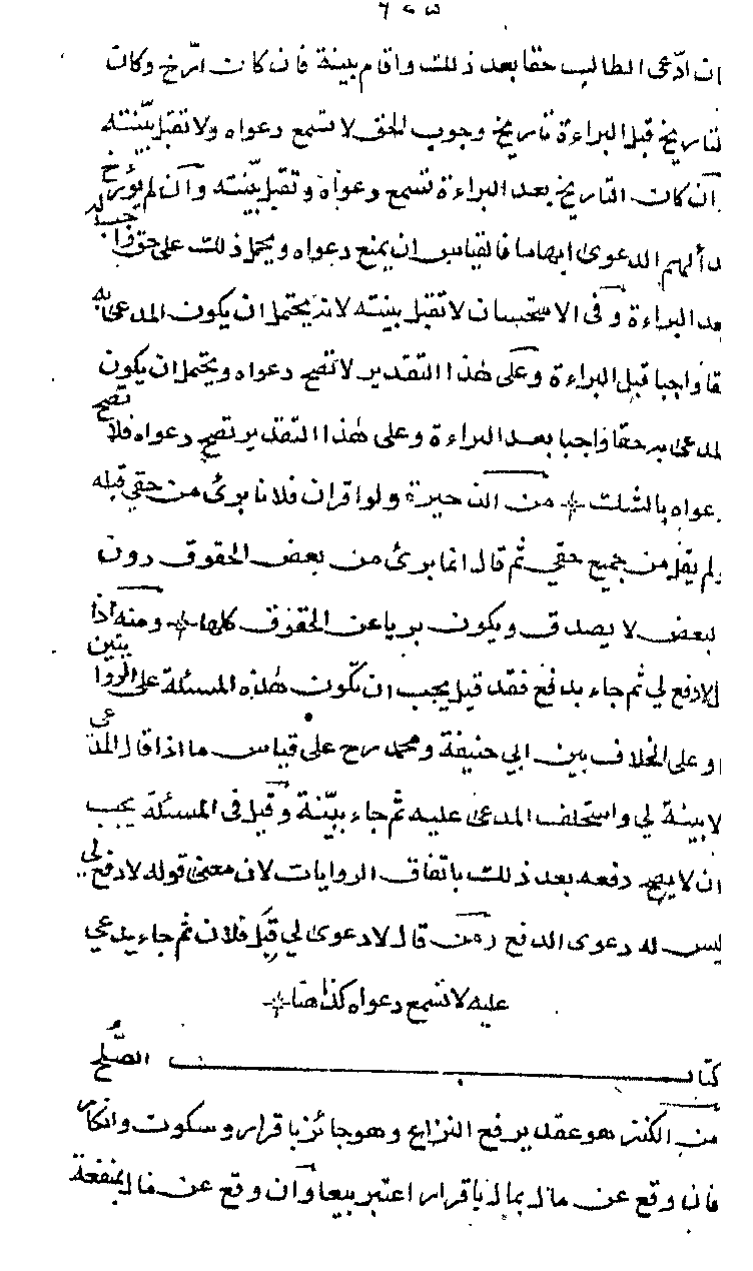 ان ادّعى الطالب حقا بعد ذلك واقام بينة فان كان ارّخ وكان
التاريخ قبل البراءة تاريخ وجوب الحق لا تسمع دعواه ولا تقبل بيّنته
وان كان التاريخ بعد البراءة تسمع دعواه وتقبل بيّنته وان لم يؤرخ
بل ابهم الدعوى ابهاما فالقياس ان يمنع دعواه ويحمل ذلك على حق واجب له
بعد البراءة وفى الاستحسان لا تقبل بينته لانه يحتمل ان يكون المدعى به
حقا واجبا قبل البراءة وعلى هذا التقدير لا تصح دعواه ويحتمل ان يكون
المدعى به حقا واجبا بعد البراءة وعلى هذا التقدير تصح دعواه فلا تصح
دعواه بالشك من الذخيرة ولو اقر ان فلانا برئ من حقي قبله
ولم يقل من جميع حقي ثم قال انما برئ من بعض الحقوق دون
البعض لا يصدق ويكون بريا عن الحقوق كلها ومنه اذا
لا دفع لي ثم جاء بدفع فقد قيل يجب ان تكون هذه المسئلة على الروايتين
او على الخلاف بين ابي حنيفة ومحمد رح على قياس ما اذا قال المدعي
لا بينة لي واستحلف المدعى عليه ثم جاء ببيّنة وقيل فى المسئلة يجب
ان لا يصح دفعه بعد ذلك باتفاق الروايات لان معنى قوله لا دفع لي
ليس له دعوى الدفع ومن قال لا دعوى لي قبل فلان ثم جاء يدعي
عليه لا تسمع دعواه كذا هنا
كتاب الصُّلح
من الكنز هو عقد يرفع النزاع وهو جائز باقرار وسكوت وانكار
فان وقع عن مال بمال باقرار اعتبر بيعا وان وقع عن مال بمنفعة